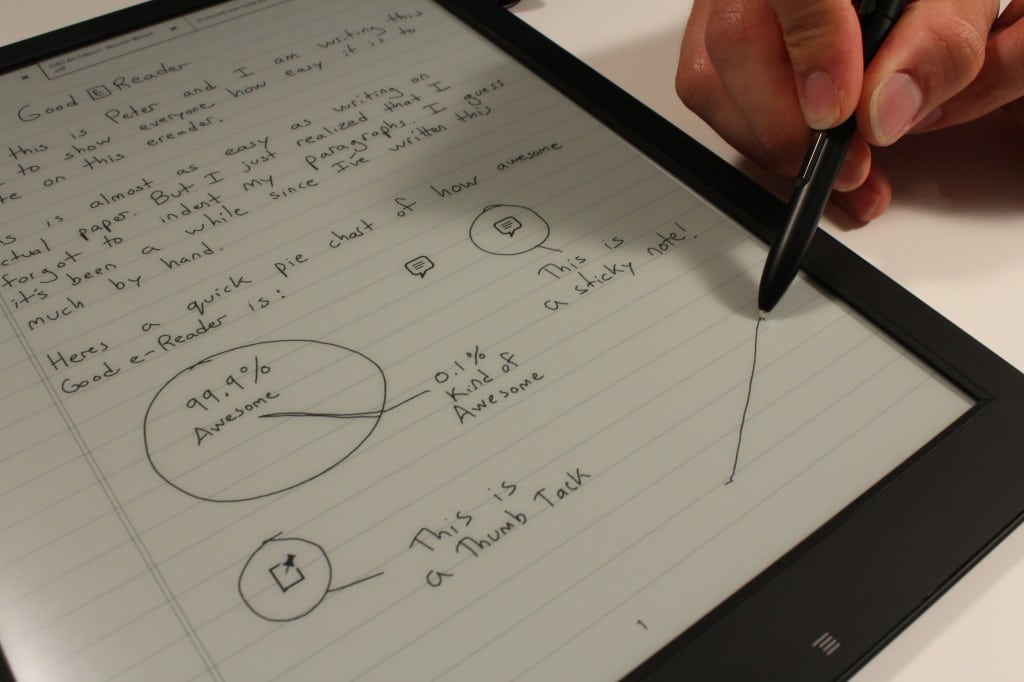 Good E Reader
this is Peter and I am writing this
to show everyone how easy it is to
on this ereader.
is almost as easy as writing on
actual paper. But I just realized that I
forgot to indent my paragraphs. I guess
it's been a while since I've written this
much by hand.
Heres a quick pie chart of how awesome
Good e-Reader is:
This is
a sticky note!
99.9%
Awesome
0.1%
Kind of
Awesome
This is
a Thumb Tack
1